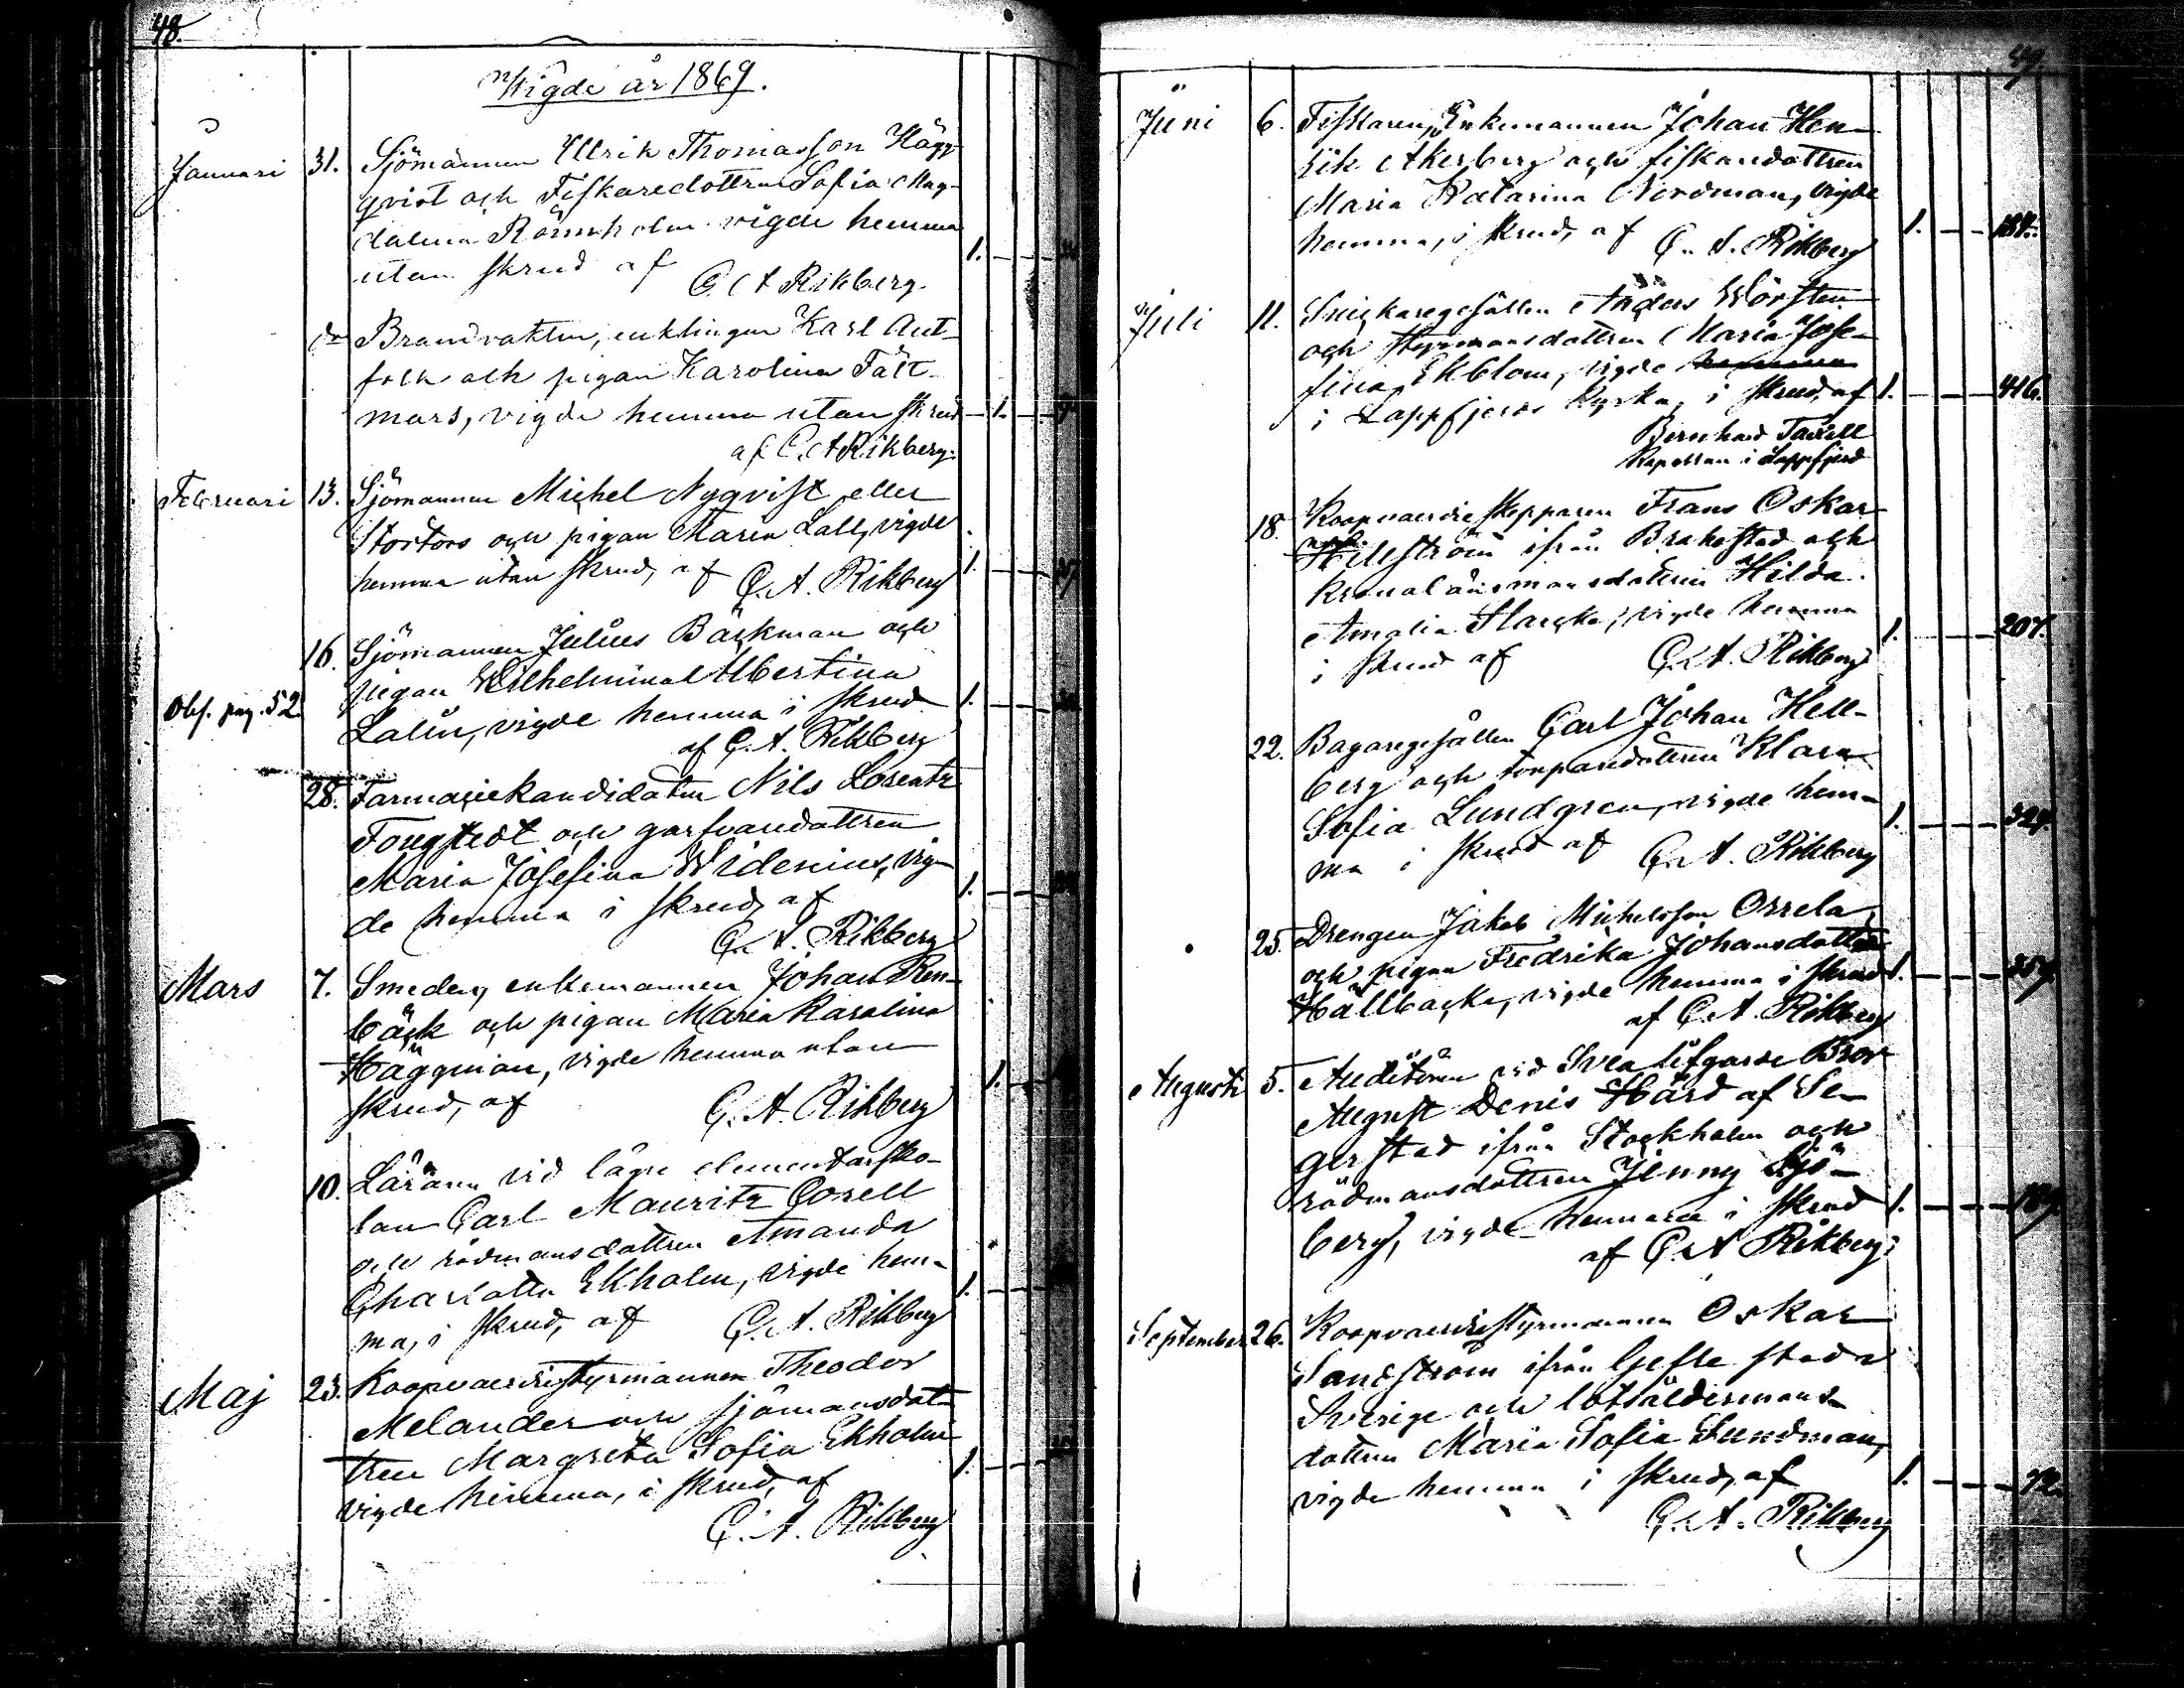 48.
Vigde år 1869.
Januari 31. Sjömannen Ulrik Thomasson Hägg-
qvist och Fiskaredottren Sofia Mag-
dalena Rönnholm vigde hemma
utan skrud af 1.
C. A. Rikberg.
do Brandvakten, enklingen Karl Ant-
folk och pigan Karolina Fält-
mars, vigde hemma utan skrud 1.
af C. A Rikberg.
Februari 13. Sjömannen Michel Nyqvist eller
Stortors och pigan Maria Lall, vigde
hemma utan skrud, af C. A. Rikberg 1.
16. Sjömannen Julius Bäckman och
pigan Wilhelmina Albertina
Obs. pag. 52. Lalin, vigde hemma i skrud 1.
af C. A. Rikberg
28. Farmaciekandidaten Nils Lorentz
Fougstedt och garfvaredottren
Maria Josefina Widenius, vig-
de hemma i skrud, af 1.
C. A. Rikberg
Mars 7. Smeden, enkemannen Johan Ren-
bäck och pigan Maria Karolina
Häggman, vigde hemma utan
skrud, af C. A. Rikberg 1.
10. Läraren vid lägre elementarsko-
lan Carl Mauritz Corell
och rådmansdottren Amanda
Charlotta Ekholm, vigde hem-
ma, i skrud, af C. A. Rikberg 1.
Maj 23. Koopvaerdistyrmannen Theodor
Melander och sjömansdot-
tren Margreta Sofia Ekholm
vigde hemma, i skrud, af 1.
C. A. Rikberg
49.
Juni 6. Fiskaren, Enkemannen Johan Hen-
rik Åkerberg och fiskaredottren
Maria Katarina Nordman, vigde
hemma, i skrud, af C. A. Rikberg 1. 184.
Juli 11. Snickaregesällen Anders Wörsten
och styrmansdottren Maria Jose-
fina Ekblom, vigde hemma
i Lappfjerds Kyrka, i skrud, af 1. 416.
Bernhard Taxell
Kapellan i Lappfjerd
18. Koopvaerdieskepparen Frans Oskar
Hellström ifrån Brahestad och
kronolänsmansdottren Hilda
Amalia Starcke, vigde hemma
i skrud af C. A. Rikberg 1. 207.
22. Bagaregesällen Carl Johan Hell-
berg och torparedottren Klara
Sofia Lundgren, vigde hem-
ma i skrud af C. A. Rikberg 1. 324.
25. Drengen Jakob Michelsson Orrela
och pigan Fredrika Johansdotter
Hällback, vigde hemma i skrud 1. 357.
af C. A. Rikberg
Augusti 5. Auditören vid Svea lifgarde Bror
August Denis Hård af Se-
gerstad ifrån Stockholm och
rådmansdottren Jenny Sjö-
berg, vigde hemma i skrud 1. 189.
af C. A Rikberg.
September 26. Koopvaerdistyrmannen Oskar
Sandström ifrån Gefle stad
Sverige och lotsåldermans-
dottren Maria Sofia Sundman,
vigde hemma i skrud, af 1. 72.
C. A. Rikberg